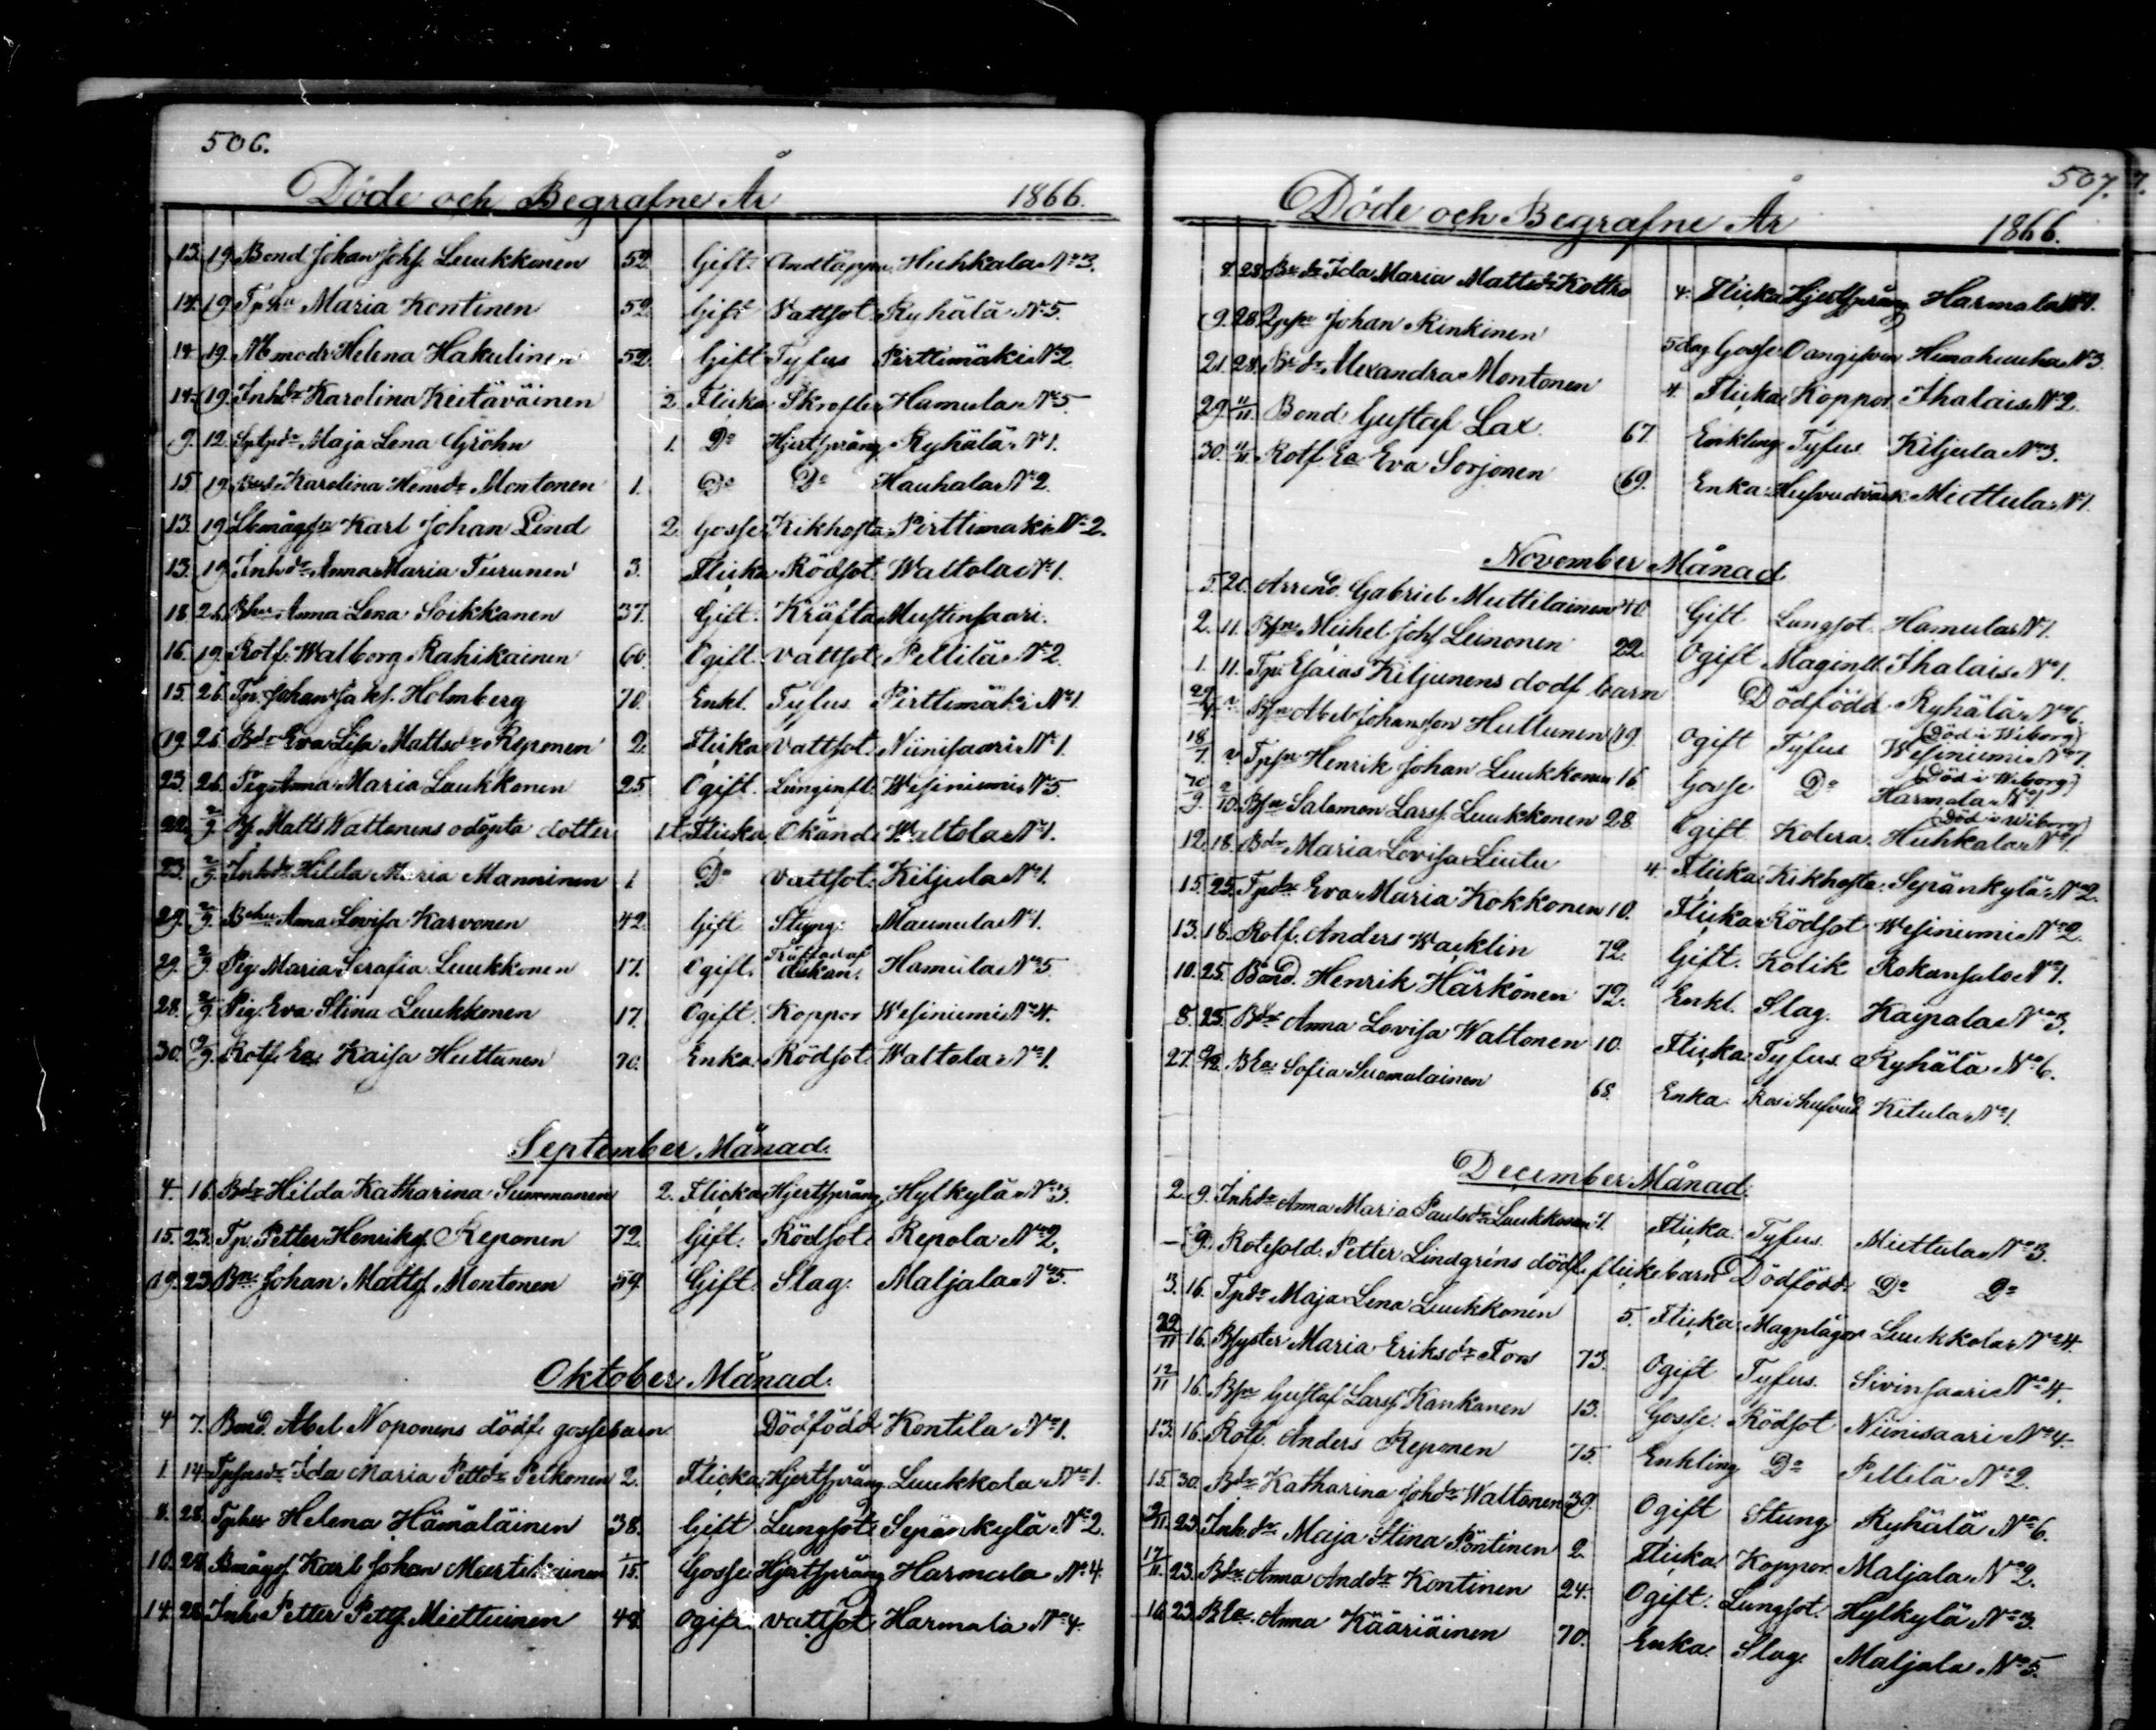 506.
Döde och Begrafne År 1866.
13. 19. Bond Johan Johs. Luukkonen 52. Gift. Andtäppa. Huhkala No 3.
14. 19. Tphu Maria Kontinen 52. Gift Vattsot. Ryhälä No 5.
14. 19. Helena Hakulinen 52. Gift Tyfus Pirttimäki No 2.
14. 19. Inhdr Karolina Keitäväinen 2. Flicka Skrofler Hamula No 5.
9. 12. Maja Lena Gröhn 1. Do Hjertsprång Ryhälä No 1.
15. 19. Karolina Henrdr Montonen 1. Do Do Hauhala No 2.
13. 19. Karl Johan Lind 2. Gosse Kikhosta Pirttimäki No 2.
13. 19. Inhdr Anna Maria Turunen 3. Flicka Rödsot. Waltola No 1.
18. 26. Bhu Anna Lena Soikkanen 37. Gift. Kräfta Mustinsaari.
16. 19. Rotf. Walborg Rahikainen 60. Ogift. Vattsot. Pellilä No 2.
15. 26. Tp. Johan Holmberg 70. Enkl. Tyfus Pirttimäki No 1.
19. 26. Bdr Eva Lisa Mattsdr Reponen 2. Flicka Vattsot. Niinisaari No 1.
23. 26. Pig. Anna Maria Luukkonen 25. Ogift. Lunginfl. Wesiniemi No 5.
22. 2/9 Matts Wattonens odöpta dotter Flicka Okänd Waltola No 1.
23. 2/9 Inhdr Hilda Maria Manninen 1 Do Vattsot. Kiljula No 1.
29. 2/9 Bhu Anna Lovisa Karvonen 42. Gift Styng. Maunula No 1.
29. 2/9 Pig. Maria Serafia Luukkonen 17. Ogift. Träffad af åskan. Hamula No 5.
28. 2/9 Pig. Eva Stina Luukkonen 17. Ogift. Koppor Wesiniemi No 4.
30. 2/9 Rotf. Ea Kaisa Huttunen 70. Enka. Rödsot. Waltola No 1.
September Månad.
4. 16. Bdr Hilda Katharina Summanen 2. Flicka Hjertsprång Hylkylä No 3.
15. 23. Tp. Petter Henriks. Reponen 72. Gift. Rödsot. Repola No 2.
19. 23. Johan Matts. Montonen 59. Gift. Slag. Maljala No 5.
Oktober Månad.
4 7. Bond. Abel Noponens dödf. gossebarn Dödfödd Kontila No 1.
1. 14. Ida Maria Pettdr Peikonen 2. Flicka Hjertsprång Luukkola No 1.
8. 28. Tphu Helena Hämäläinen 38. Gift Lungsot. Sepänkylä No 2.
10. 28. Bmågs. Karl Johan Martikainen 1/15. Gosse Hjertsprång Harmala No 4.
14. 28. Inh. Petter Petts. Miettuinen 48. Ogift Vattsot Harmala No 4.
507.
Döde och Begrafne År 1866.
8. 28. Bdr Ida Maria Mattsdr Kotko 4. Flicka Hjertsprång Harmala No 1.
9. 28. Tpsn Johan Rinkinen 5 dag. Gosse Oangifven Himahuuha No 3.
21. 28. Bdr Alexandra Montonen 4. Flicka Koppor Ihalais No 2.
29. 4/11. Bond. Gustaf Lax. 67. Enkling Tyfus. Kiljula No 3.
30. 4/11. Rotf. Ea Eva Sorjonen 69. Enka. Hufvudvärk Miettula No 1.
November Månad
5. 20. Arrend. Gabriel Muttilainen 40. Gift Lungsot. Hamula No 1.
2. 11. Bsn Mickel Johs. Leinonen 22. Ogift Maginfl. Ihalais No 1.
1. 11. Tp. Esaias Kiljunens dödf barn Dödfödd. Ryhälä No 6.
29/4 ? Bsn Abel Johansson Huttunen 19. Ogift Tyfus (Död i Wiborg) Wesiniemi No 7.
18/7 ? Tpsn Henrik Johan Luukkonen 16. Gosse Do (Död i Wiborg) Harmala No 1.
20/9 ?/10. Bsn Salomon Larss. Luukkonen 28. Ogift Kolera. (Död i Wiborg) Huhkala No 1.
12. 18. Bdr Maria Lovisa Liutu 4. Flicka. Kikhosta. Sepänkylä No 2.
15. 25. Tpdr Eva Maria Kokkonen 10. Flicka Rödsot Wesiniemi No 2.
13. 18. Rotf. Anders Wacklin 72. Gift. Kolik Rokansalo No 1.
10. 25. Bond. Henrik Härkönen 72. Enkl. Slag. Kaipala No 3.
8. 25. Bdr Anna Lovisa Waltonen 10. Flicka. Tyfus. Ryhälä No 6.
27. 9/12. BEa. Sofia Suomalainen 68. Enka. Ros i hufvud. Kitula No 1.
December Månad.
2. 9. Inhdr Anna Maria Paulsdr Luukkonen 1. Flicka. Tyfus. Miettula No 3.
— 9. Rotesold. Petter Lindgrens dödf. flickebarn Dödfödd. Do Do
3. 16. Tpdr Maja Lena Luukkonen 5. Flicka. Magplågor Luukkola No 4.
22/11 16. Bsyster Maria Eriksdr Fors 73. Ogift Tyfus. Sivinsaari No 4.
12/11 16. Bsn Gustaf Larss. Kankanen 13. Gosse. Rödsot Niinisaari No 4.
13. 16. Rotf. Anders Reponen 75. Enkling Do Pellilä No 2.
15. 30. Bdr Katharina Johdr Waltonen 39. Ogift Stung Ryhälä No 6.
23. Inhdr Maja Stina Pöntinen 2. Flicka Koppor. Maljala No 2.
17/11. 23. Bdr Anna Anddr Kontinen 24. Ogift. Lungsot. Hylkylä No 3.
16. 23. BEa. Anna Kääriäinen 70. Enka. Slag. Maljala No 5.